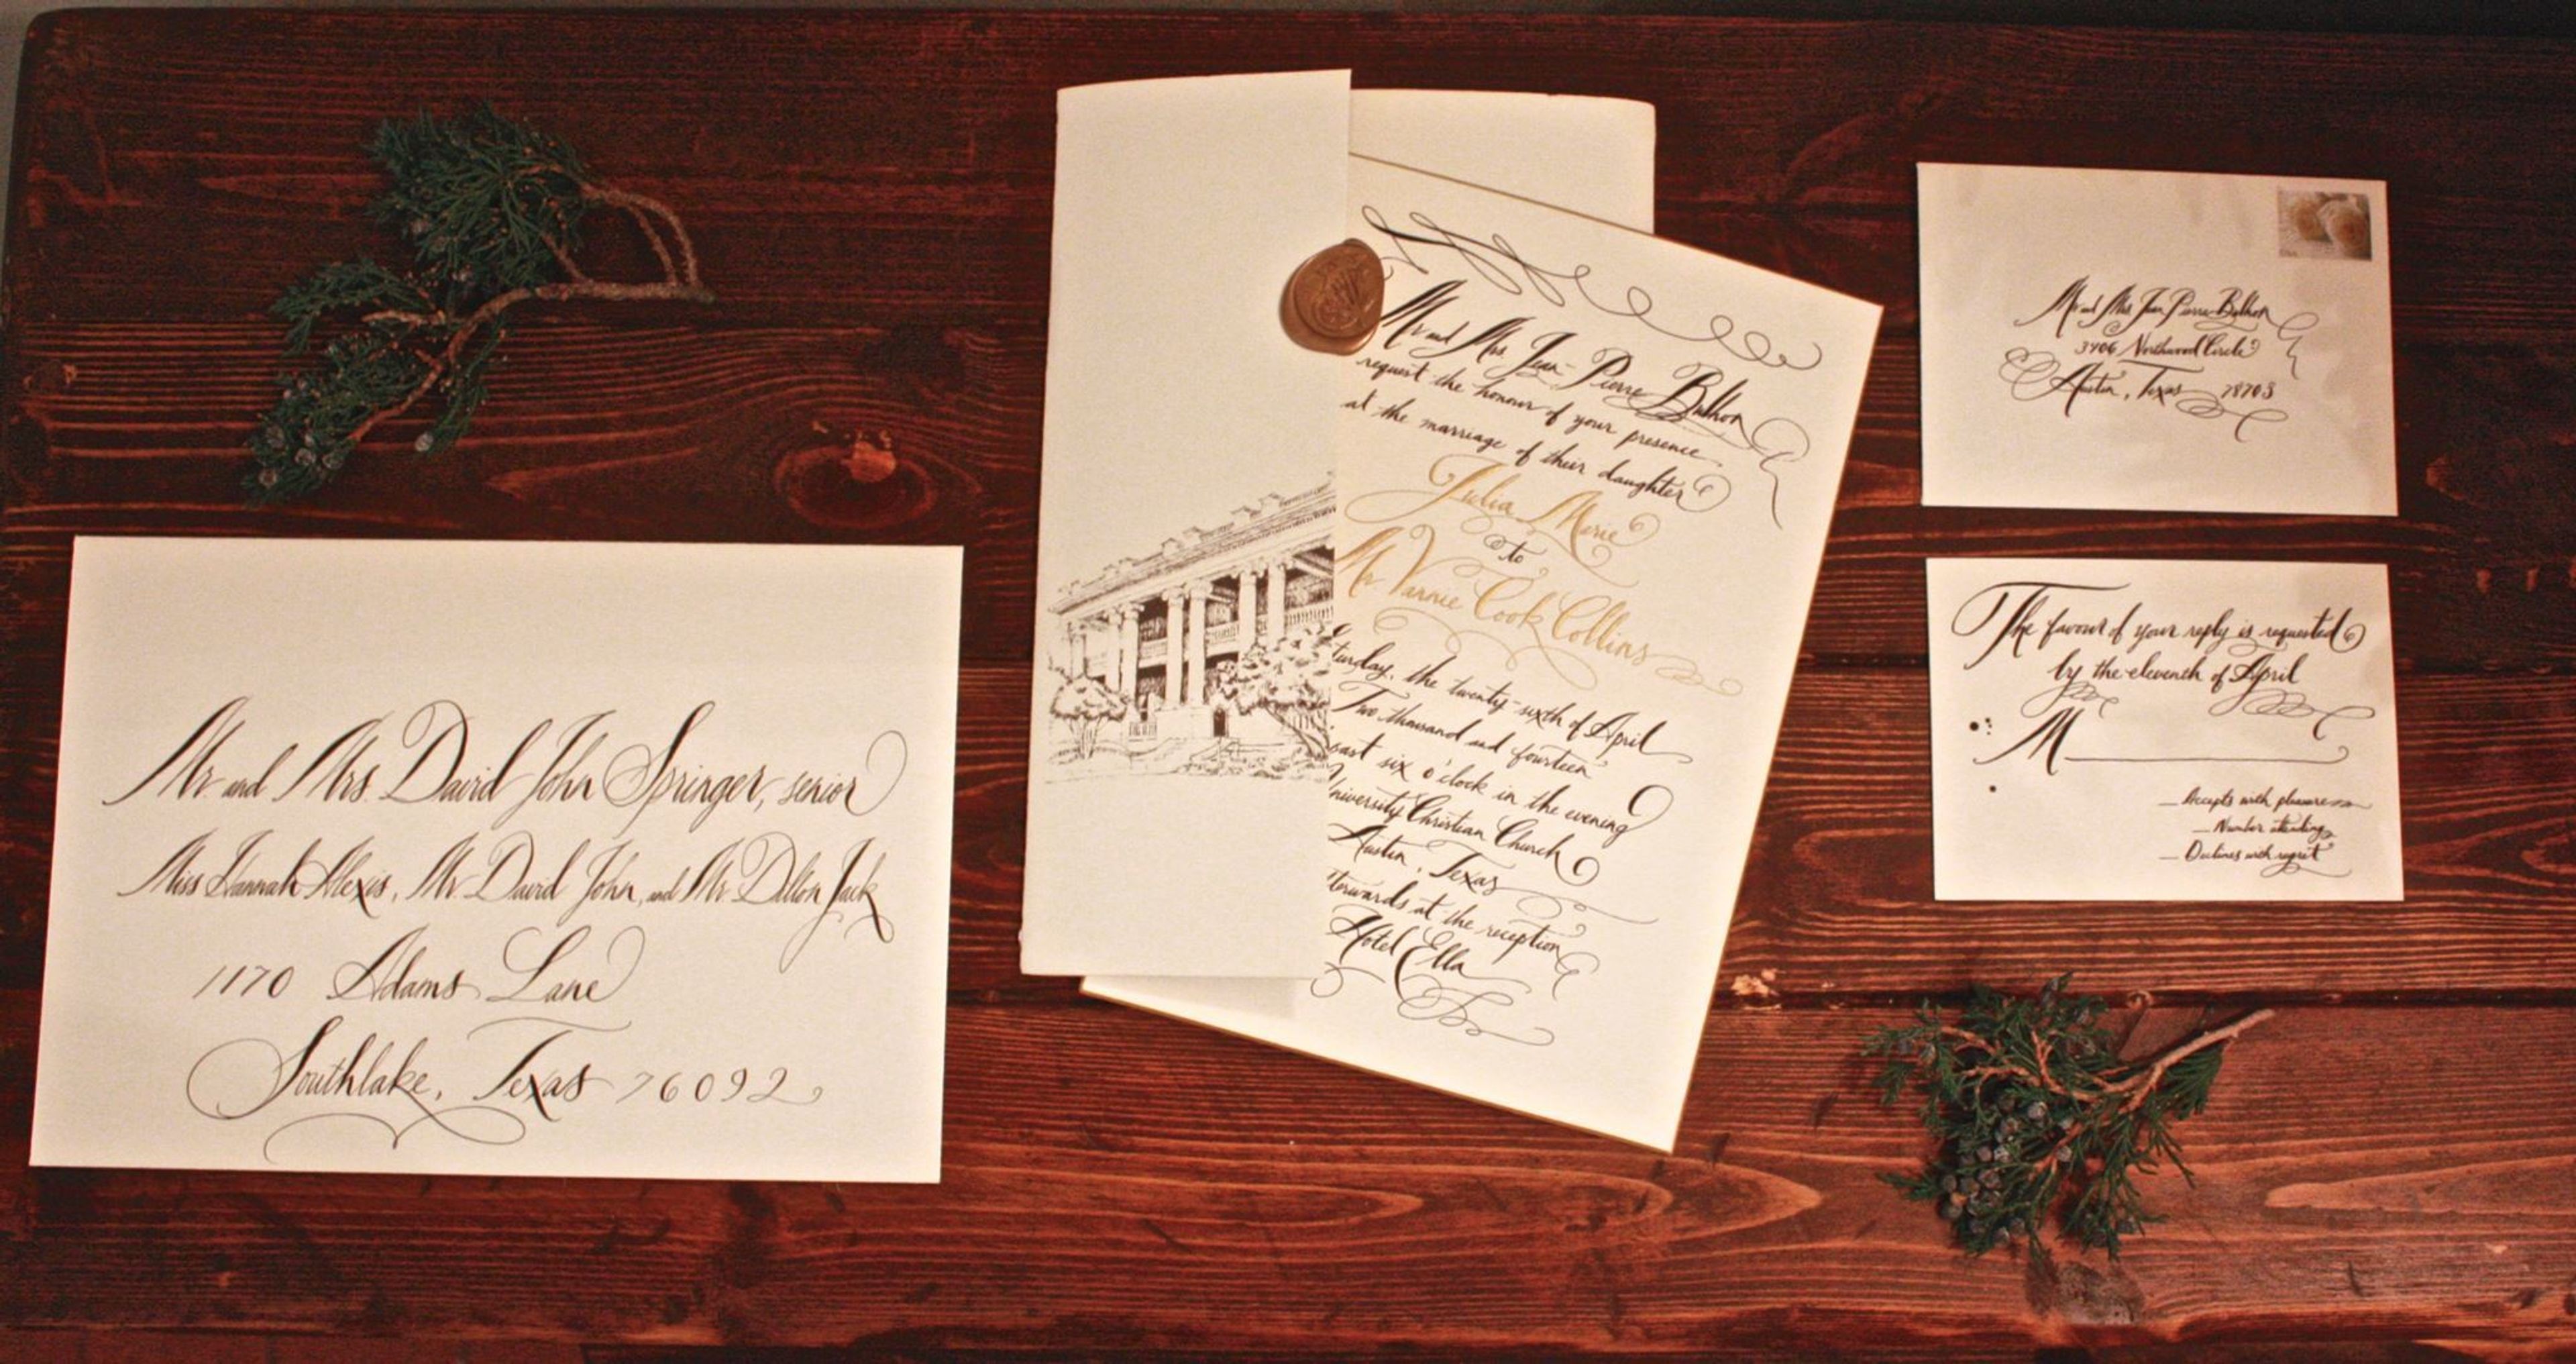 Mr. and Mrs. David John Springer, senior
Miss Hannah Alexis, Mr. David John, and Mr. Dillon Jack
1170 Adams Lane
Southlake, Texas 76092
Mr. and Mrs. Jean-Pierre Bulhon
request the honour of your presence
at the marriage of their daughter
Julia Marie
to
Mr. Varnie Cook Collins
turday, the twenty-sixth of April
Two thousand and fourteen
past six o'clock in the evening
niversity Christian Church
Austin, Texas
terwards at the reception
Hotel Ella
Mr and Mrs Jean Pierre Bulhon
3406 Northwood Circle
Austin, Texas 78703
The favour of your reply is requested
by the eleventh of April
M
Accepts with pleasure
Number attending
Declines with regret